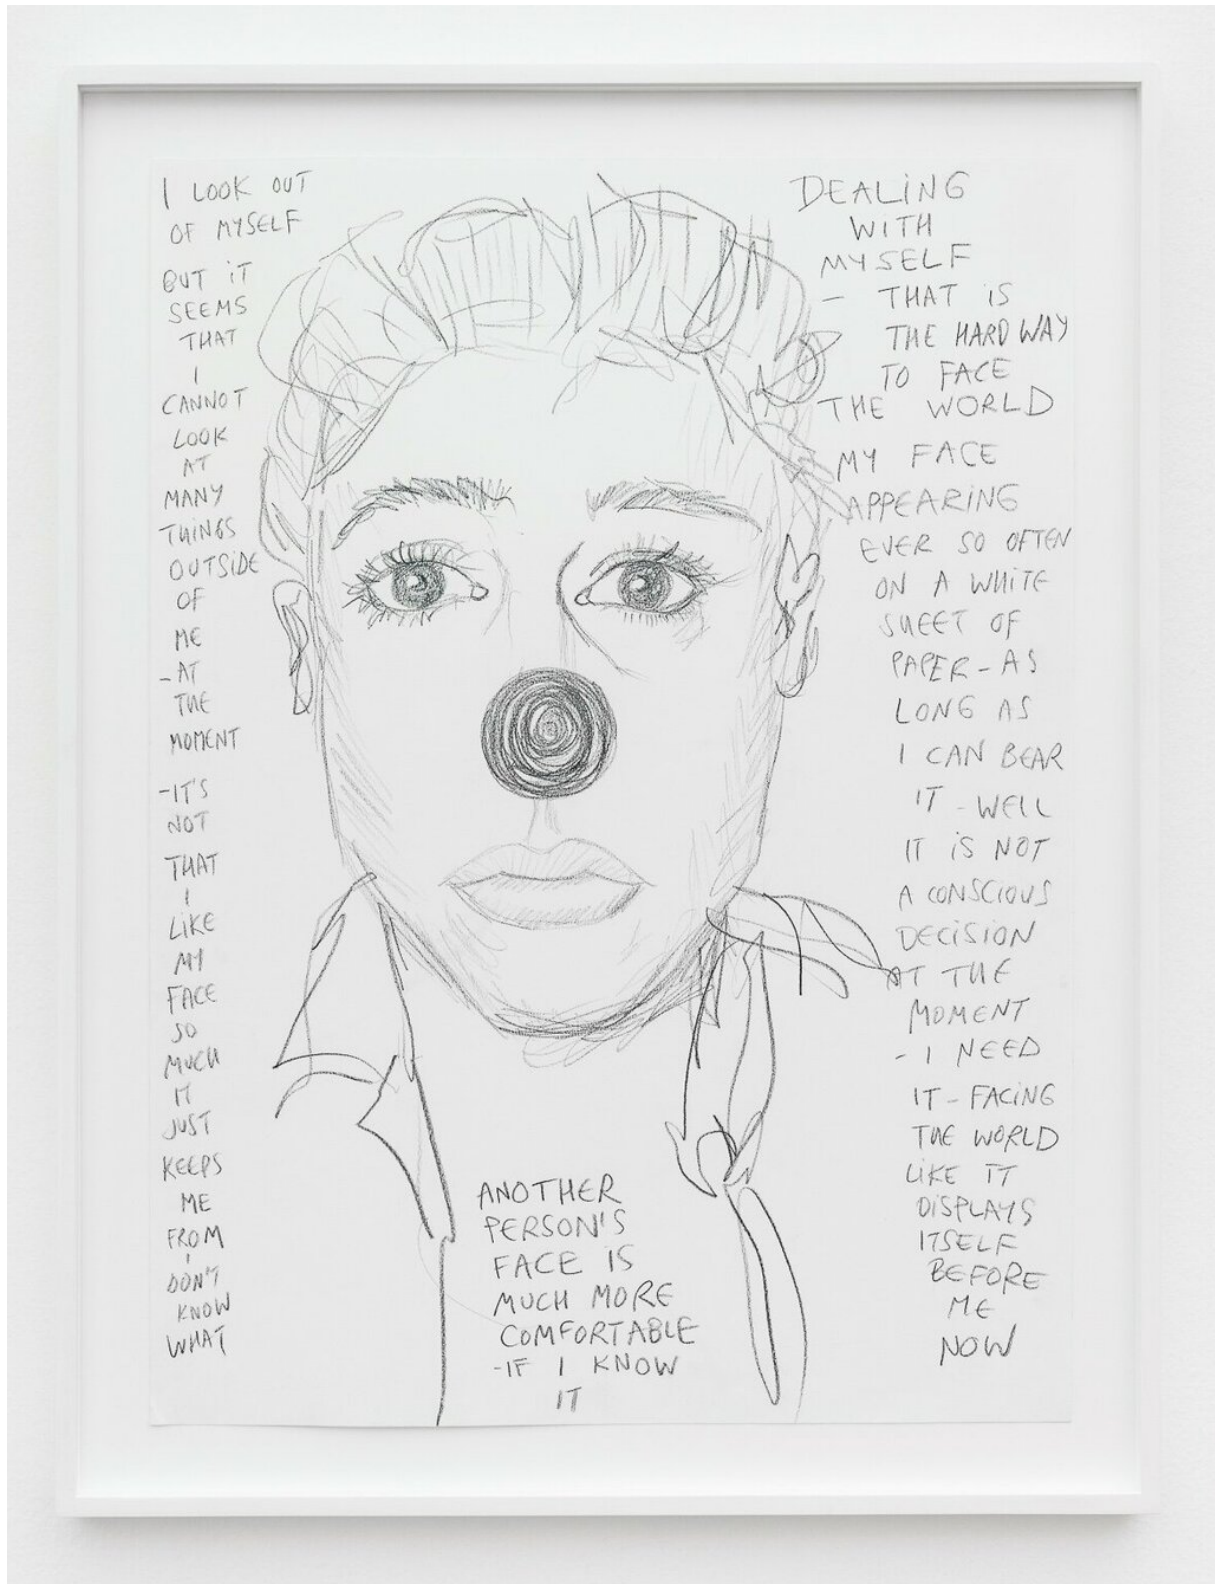 I LOOK OUT
OF MYSELF
BUT iT
SEEMS
THAT
I
CANNOT
LOOK
AT
MANY
THINGS
OUTSIDE
OF
ME
-AT
THE
MOMENT
-IT'S
NOT
THAT
I
LIKE
MY
FACE
SO
MUCH
IT
JUST
KEEPS
ME
FROM
I
DON'T
KNOW
WHAT
ANOTHER
PERSON'S
FACE IS
MUCH MORE
COMFORTABLE
-IF I KNOW
IT
DEALiNG
WITH
MYSELF
- THAT iS
THE HARD WAY
TO FACE
THE WORLD
MY FACE
APPEARiNG
EVER SO OFTEN
ON A WHITE
SHEET OF
PAPER-AS
LONG AS
I CAN BEAR
IT-WELL
IT iS NOT
A CONSCIOUS
DECiSiON
AT THE
MOMENT
- I NEED
IT-FACiNG
THE WORLD
LiKE IT
DiSPLAYS
ITSELF
BEFORE
ME
NOW